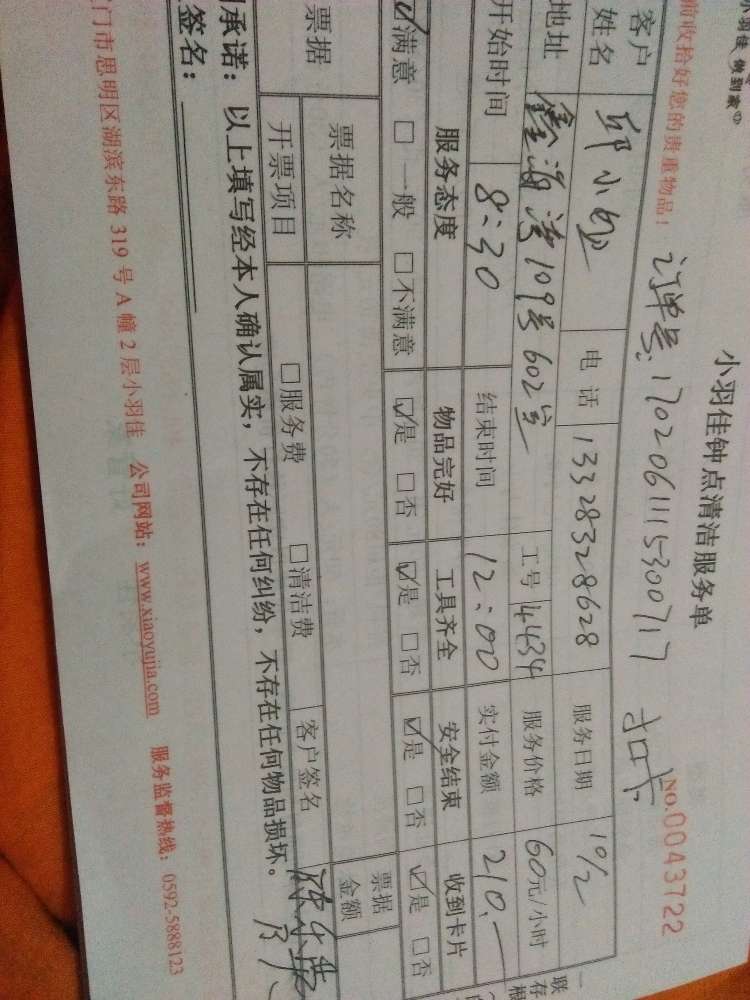 小羽佳 做到家
小羽佳钟点清洁服务单
前收拾好您的贵重物品！ 订单号:1702061115300717 扣卡 NO.0043722
客户姓名 邱小姐 电话 13328328628 服务日期 10/2
地址 鑫海湾109号602室 工号 4434 服务价格 60元/小时
开始时间 8:30 结束时间 12:00 实付金额 210.-
服务态度 物品完好 工具齐全 安全结束 收到卡片
☑满意 □一般 □不满意 ☑是 □否 ☑是 □否 ☑是 □否 ☑是 □否
票据 票据名称 票据金额
开票项目 □服务费 □清洁费 客户签名
承诺：以上填写经本人确认属实，不存在任何纠纷，不存在任何物品损坏。
签名：
门市思明区湖滨东路 319 号 A 幢 2 层小羽佳 公司网站：www.xiaoyujia.com 服务监督热线：0592-5888123
一联存根